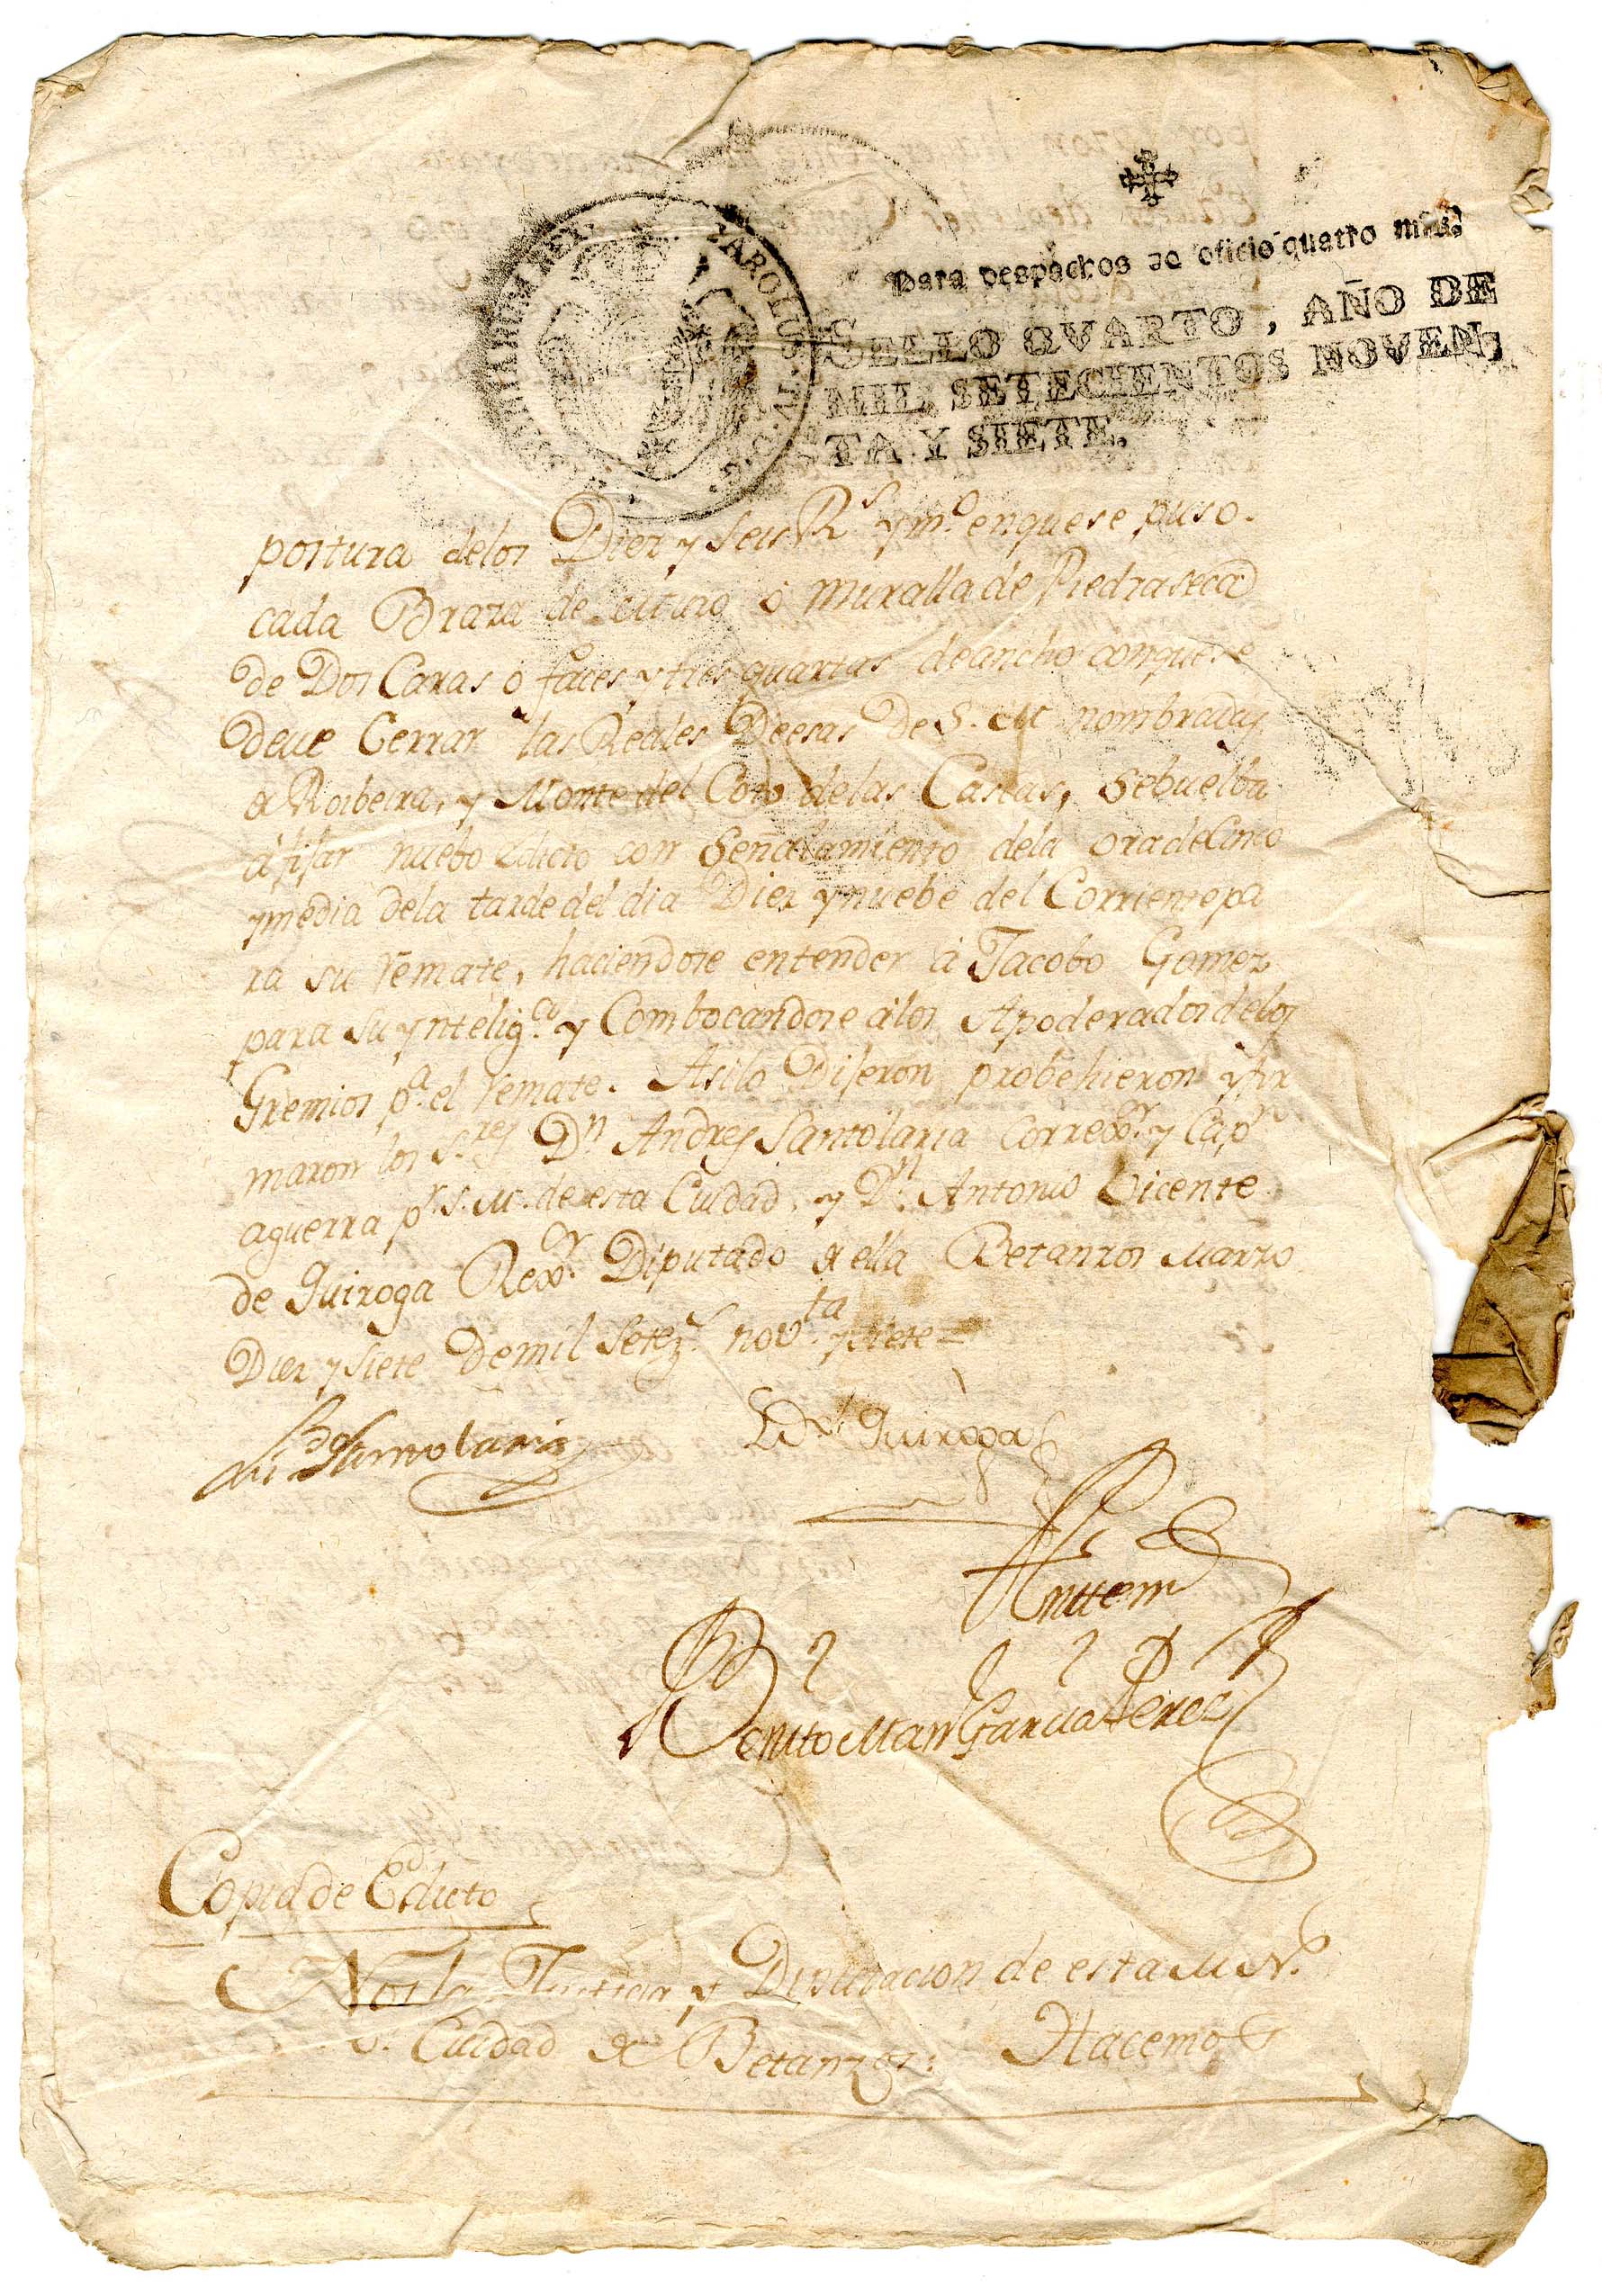 Para despachos de oficio quatro mrs.
SELLO QVARTO, AÑO DE
MIL SETECIENTOS NOVEN-
TA Y SIETE.
CAROLUS IV D. G. HISPANIARUM REX
postura delos Diez y Seis Rs. ymo. enquese puso
cada Braza de Muro ó Muralla de Piedraseca
de Dos Caras ó faces y tres quartas de ancho conquese
deve Cerrar las Reales Deesas De S. M. nombradas
de Roibeira, y Monte del Coto delas Cascas, Sebuelba
á fijar nuebo Edicto con Señalamiento dela ora de Cinco
ymedia dela tarde del dia Diez ynuebe del Corriente pa
ra su remate, haciendose entender á Jacobo Gomez
para su ynteliga. y Combocandose álos Apoderados delos
Gremios pa. el remate. Asilo Dijeron probehieron yfir
maron los Sres. Dn. Andres Santolaria Correxor. y Capn.
aguerra pr. S. M. de esta Ciudad, y Dn. Antonio Vicente
de Quiroga Rexor. Diputado de ella Betanzos Marzo
Diez y Siete Demil Setezs. novta. ysiete=
Santolaria
Quiroga
Anttemi
Benito Man Garcia Perez
Copia de Edicto
Nos la Justicia y Diputacion de esta M. N.
Ciudad de Betanzos: Hacemos